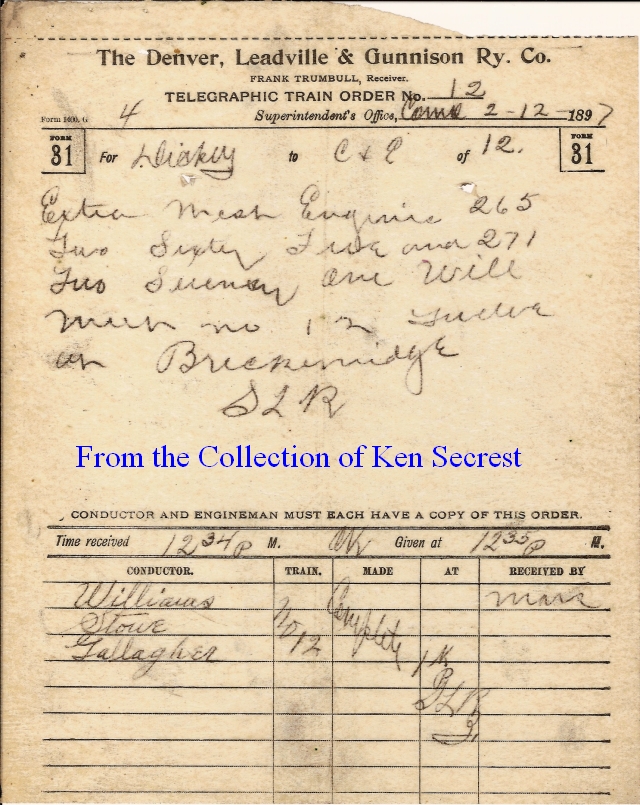 The Denver, Leadville & Gunnison Ry. Co.
FRANK TRUMBULL, Receiver.
TELEGRAPHIC TRAIN ORDER No. 12
Form 1400. G 4 Superintendent's Office, Como 2-12-1897
FORM 31 For Dickey to C & E of 12. FORM 31
Extra West Engine 265
Two Sixty Five and 271
Two Seventy One Will
Meet no 12 Twelve
at Breckenridge
SLR
From the Collection of Ken Secrest
CONDUCTOR AND ENGINEMAN MUST EACH HAVE A COPY OF THIS ORDER.
Time received 1234 P M. OK Given at 1235 P M.
CONDUCTOR. TRAIN. MADE AT RECEIVED BY
Williams
Stowe No 12 Complete
Gallagher
SLR